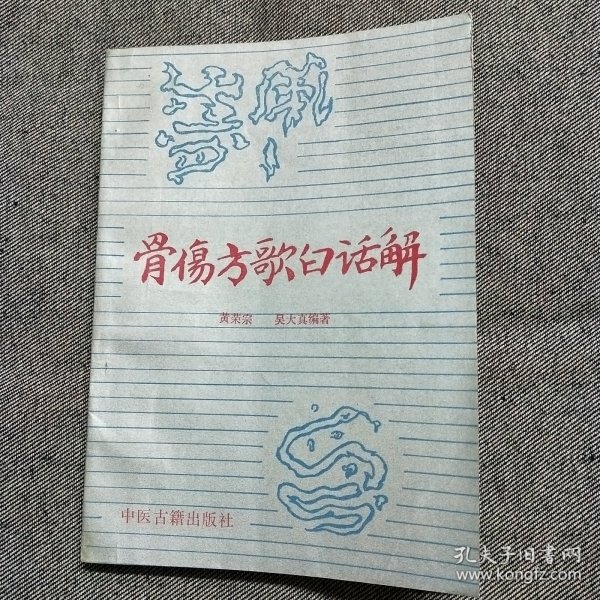 骨傷方歌白话解
黄荣宗 吴大真编著
中医古籍出版社
孔夫子旧书网
www.kongfz.com